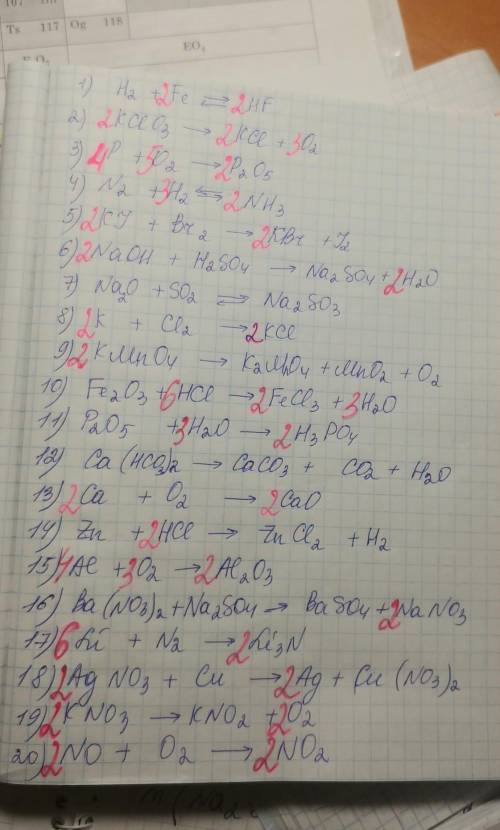 Ts 117 Og 118
EO₄
1) H₂ + 2Fe ⇌ 2HF
2) 2KClO₃ → 2KCl + 3O₂
3) 4P + 5O₂ → 2P₂O₅
4) N₂ + 3H₂ ⇌ 2NH₃
5) 2KJ + Br₂ → 2KBr + J₂
6) 2NaOH + H₂SO₄ → Na₂SO₄ + 2H₂O
7) Na₂O + SO₂ ⇌ Na₂SO₃
8) 2K + Cl₂ → 2KCl
9) 2KMnO₄ → K₂MnO₄ + MnO₂ + O₂
10) Fe₂O₃ + 6HCl → 2FeCl₃ + 3H₂O
11) P₂O₅ + 3H₂O → 2H₃PO₄
12) Ca(HCO₃)₂ → CaCO₃ + CO₂ + H₂O
13) 2Ca + O₂ → 2CaO
14) Zn + 2HCl → ZnCl₂ + H₂
15) 4Al + 3O₂ → 2Al₂O₃
16) Ba(NO₃)₂ + Na₂SO₄ → BaSO₄ + 2NaNO₃
17) 6Li + N₂ → 2Li₃N
18) 2AgNO₃ + Cu → 2Ag + Cu(NO₃)₂
19) 2KNO₃ → KNO₂ + 2O₂
20) 2NO + O₂ → 2NO₂